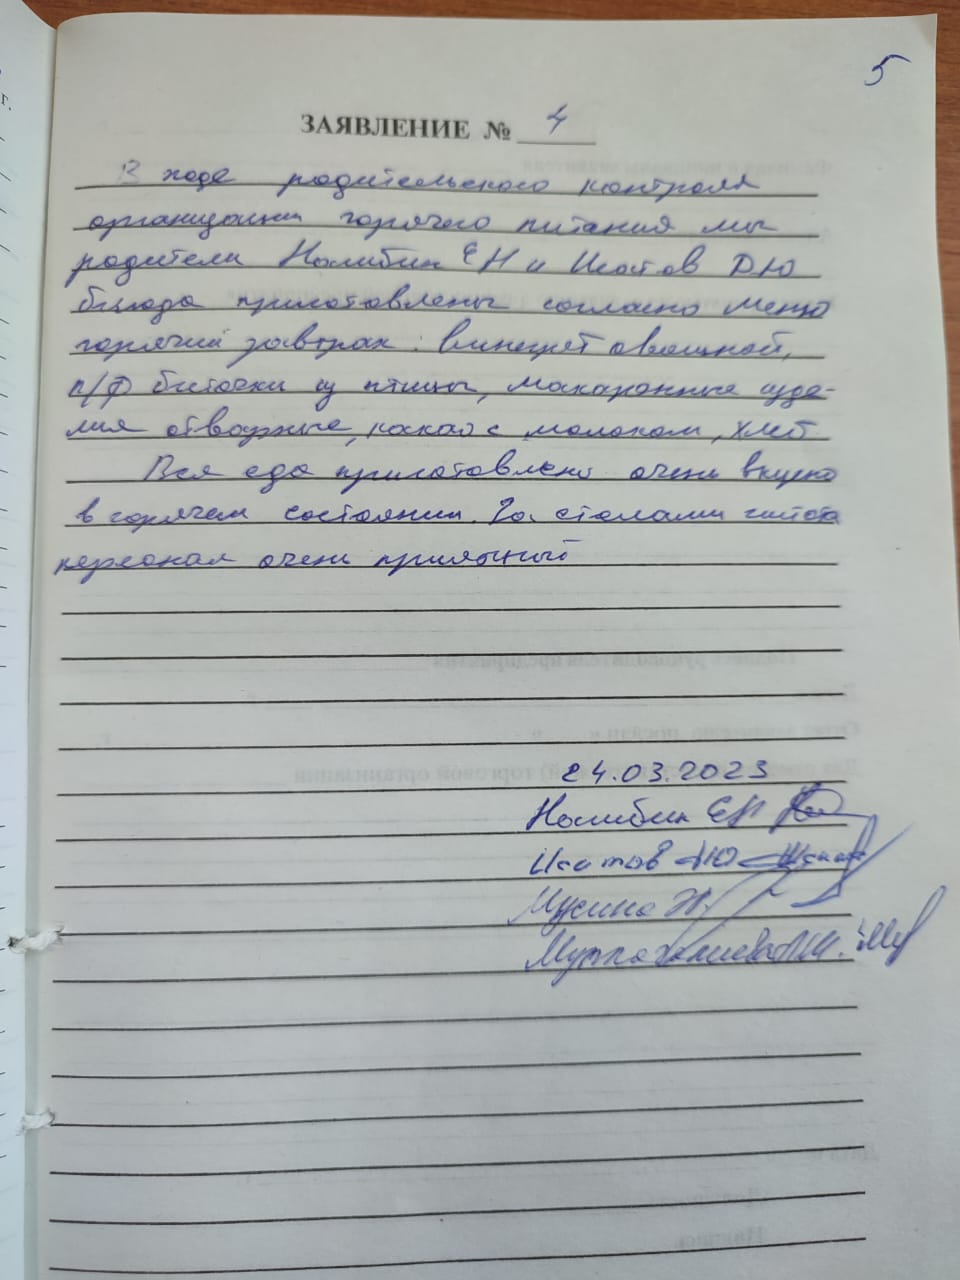 5
ЗАЯВЛЕНИЕ № 4
В ходе родительского контроля
организации горячего питания мы
родители Налибин ЕН и Исатов D.Ю
блюда приготовлены согласно меню
горячий завтрак: винегрет овощной,
п/ф биточки из птицы, макаронные изде-
лия отварные, какао с молоком, хлеб
Вся еда приготовлена очень вкусно
в горячем состоянии. За столами чистота
персонал очень приятный
24.03.2023
Налибин ЕН
Исатов ДЮ
Мусина Ж.